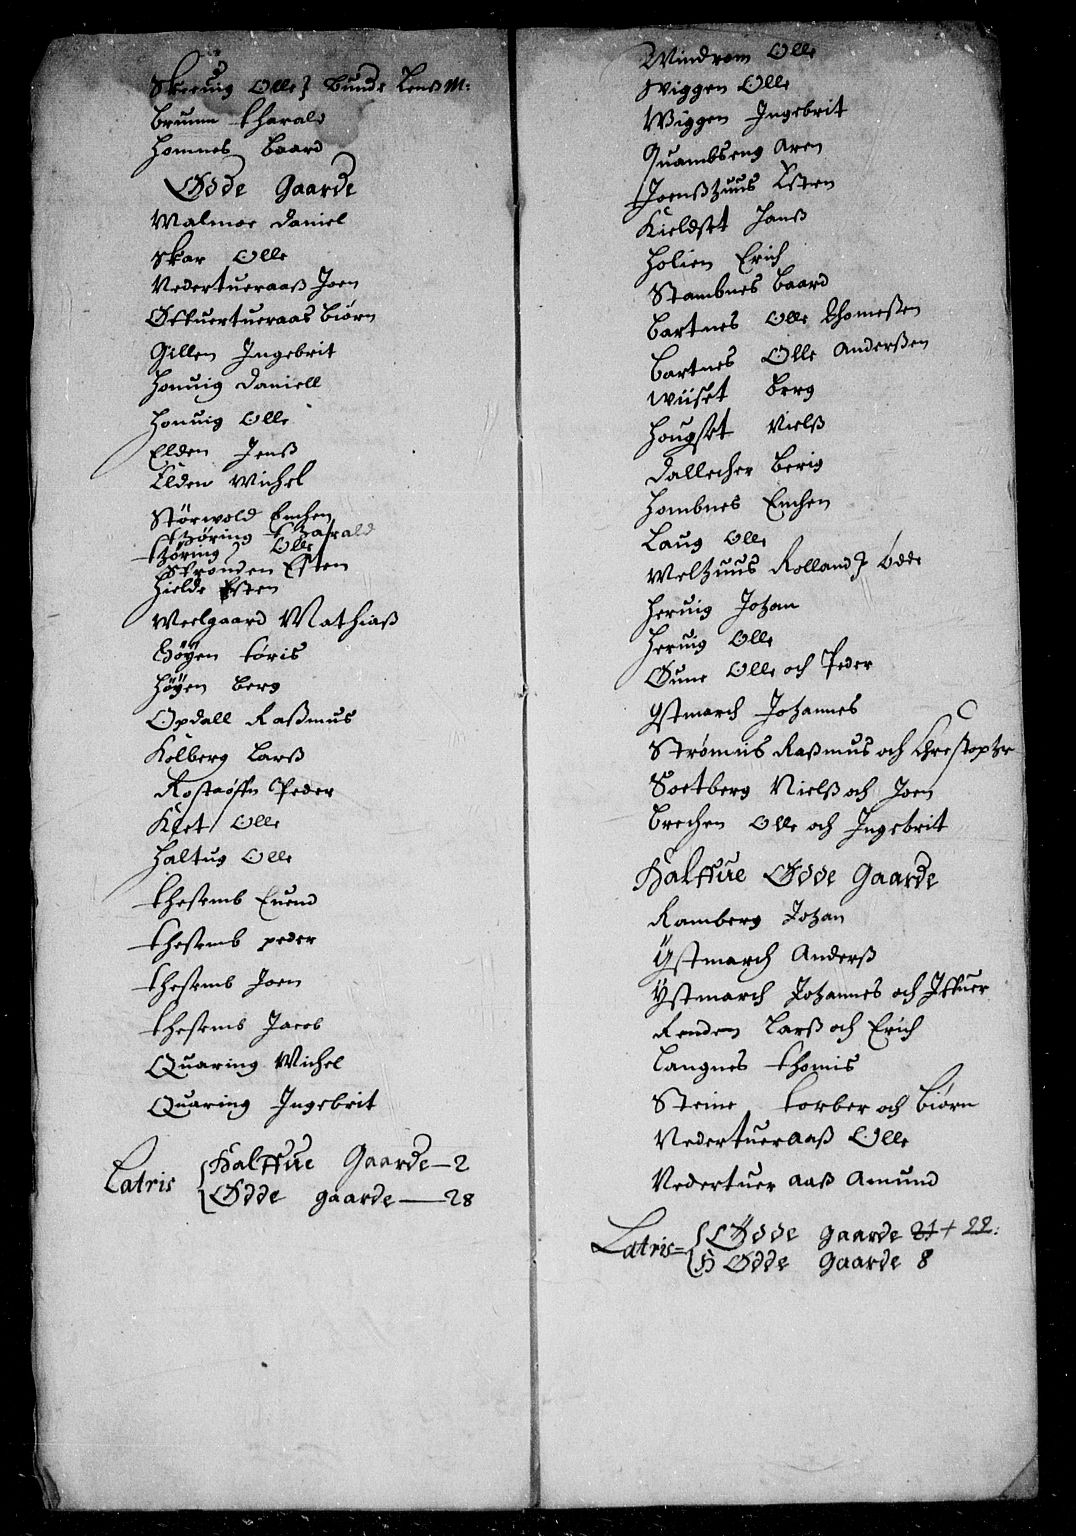 Skeruig Olle} bunde Lens M:
Brunn tharald
Homnes Baard
Ødde Gaarde
Malmoe Daniel
Skar Olle
Nedertueraaß Joen
Øffuertueraas Biørn
Gillen Ingebrit
Honuig Daniell
Honuig Olle
Elden Jenß
Elden Michel
Størwold Enchen
tzøring tzarald
tzøring Olle
Stranden Esten
Hielde Esten
Meelgaard Mathiaß
Høyen toris
Høyen Berg
Opdall Raßmus
Kolberg Larß
Rostøffn Peder
Klet Olle
Haltug Olle
thesemb Euend
thesemb peder
thesemb Joen
thesemb Jacob
Quaring Michel
Quaring Ingebrit
Latris {Halffue Gaarde—2
{Ødde gaarde——28
Windrem Olle
Wiggen Olle
Wiggen Ingebrit
Quambseng Aren
Joenßzuus Esten
Kieldset Janß
Holien Erich
Stambnes Baard
Bartnes Olle thomeßen
Bartnes Olle Anderßen
Wiiset Berg
Hougset Nielß
Dallecher Berig
Hombnes Enchen
Laug Olle
Melzuus Rolland} Ødde
Heruig Johan
Heruig Olle
Øune Olle och Peder
Ystmarch Johannes
Strømnis Raßmus och Chrestopher
Soetberg Nielß och Joen
Brechen Olle och Ingebrit
Halffue Ødde Gaarde
Ramberg Johan
Ystmarch Anderß
Ystmarch Johannes och Iffuer
Renden Larß och Erich
Langnes thomis
Steine torber och Biørn
Nedertueraaß Olle
Nedertuer aaß Amund
Latris= {Ødde gaarde 21 + 22:
{H Ødde gaarde 8